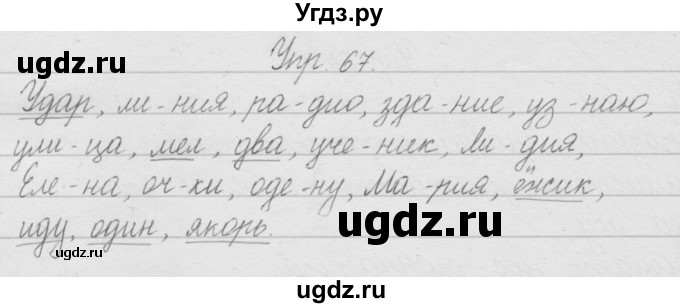 Угдз.ру
ugdz.ru
Упр. 67.
ugdz.ru
Удар, ли-ния, ра-дио, зда-ние, уз-наю,
ули-ца, мел, два, уче-ник, Ли-дия,
Еле-на, оч-ки, оде-ну, Ма-рия, ёжик,
иду, один, якорь.
ugdz.ru
ugdz.ru
ugdz.ru